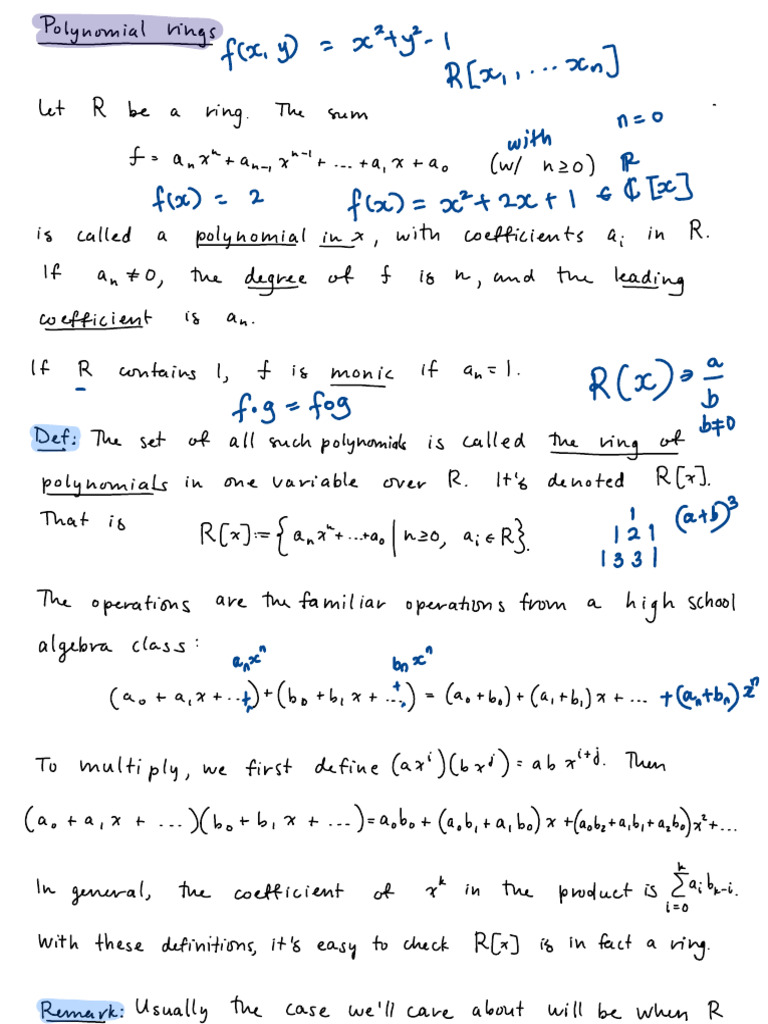 Polynomial rings
f(x, y) = x²+y²-1
R[x₁, ... xₙ]
Let R be a ring. The sum
n=0
with
f = aₙxⁿ + aₙ₋₁xⁿ⁻¹ + ... + a₁x + a₀ (w/ n≥0) R
f(x) = 2 f(x) = x² + 2x + 1 ∈ ℂ[x]
is called a polynomial in x, with coefficients aᵢ in R.
If aₙ ≠ 0, the degree of f is n, and the leading
coefficient is aₙ.
If R contains 1, f is monic if aₙ = 1.
R(x) → a/b
b≠0
f·g = f∘g
Def: The set of all such polynomials is called the ring of
polynomials in one variable over R. It's denoted R[x].
That is
R[x] := {aₙxⁿ + ... + a₀ | n≥0, aᵢ ∈ R}.
1 (a+b)³
1 2 1
1 3 3 1
The operations are the familiar operations from a high school
algebra class:
aₙxⁿ bₙxⁿ
(a₀ + a₁x + ...+) + (b₀ + b₁x + ...+) = (a₀+b₀) + (a₁+b₁)x + ... + (aₙ+bₙ)xⁿ
To multiply, we first define (axⁱ)(bxʲ) = ab xⁱ⁺ʲ. Then
(a₀ + a₁x + ...)(b₀ + b₁x + ...) = a₀b₀ + (a₀b₁ + a₁b₀)x + (a₀b₂ + a₁b₁ + a₂b₀)x² + ...
In general, the coefficient of xᵏ in the product is ∑ᵢ₌₀ᵏ aᵢbₖ₋ᵢ.
With these definitions, it's easy to check R[x] is in fact a ring.
Remark: Usually the case we'll care about will be when R